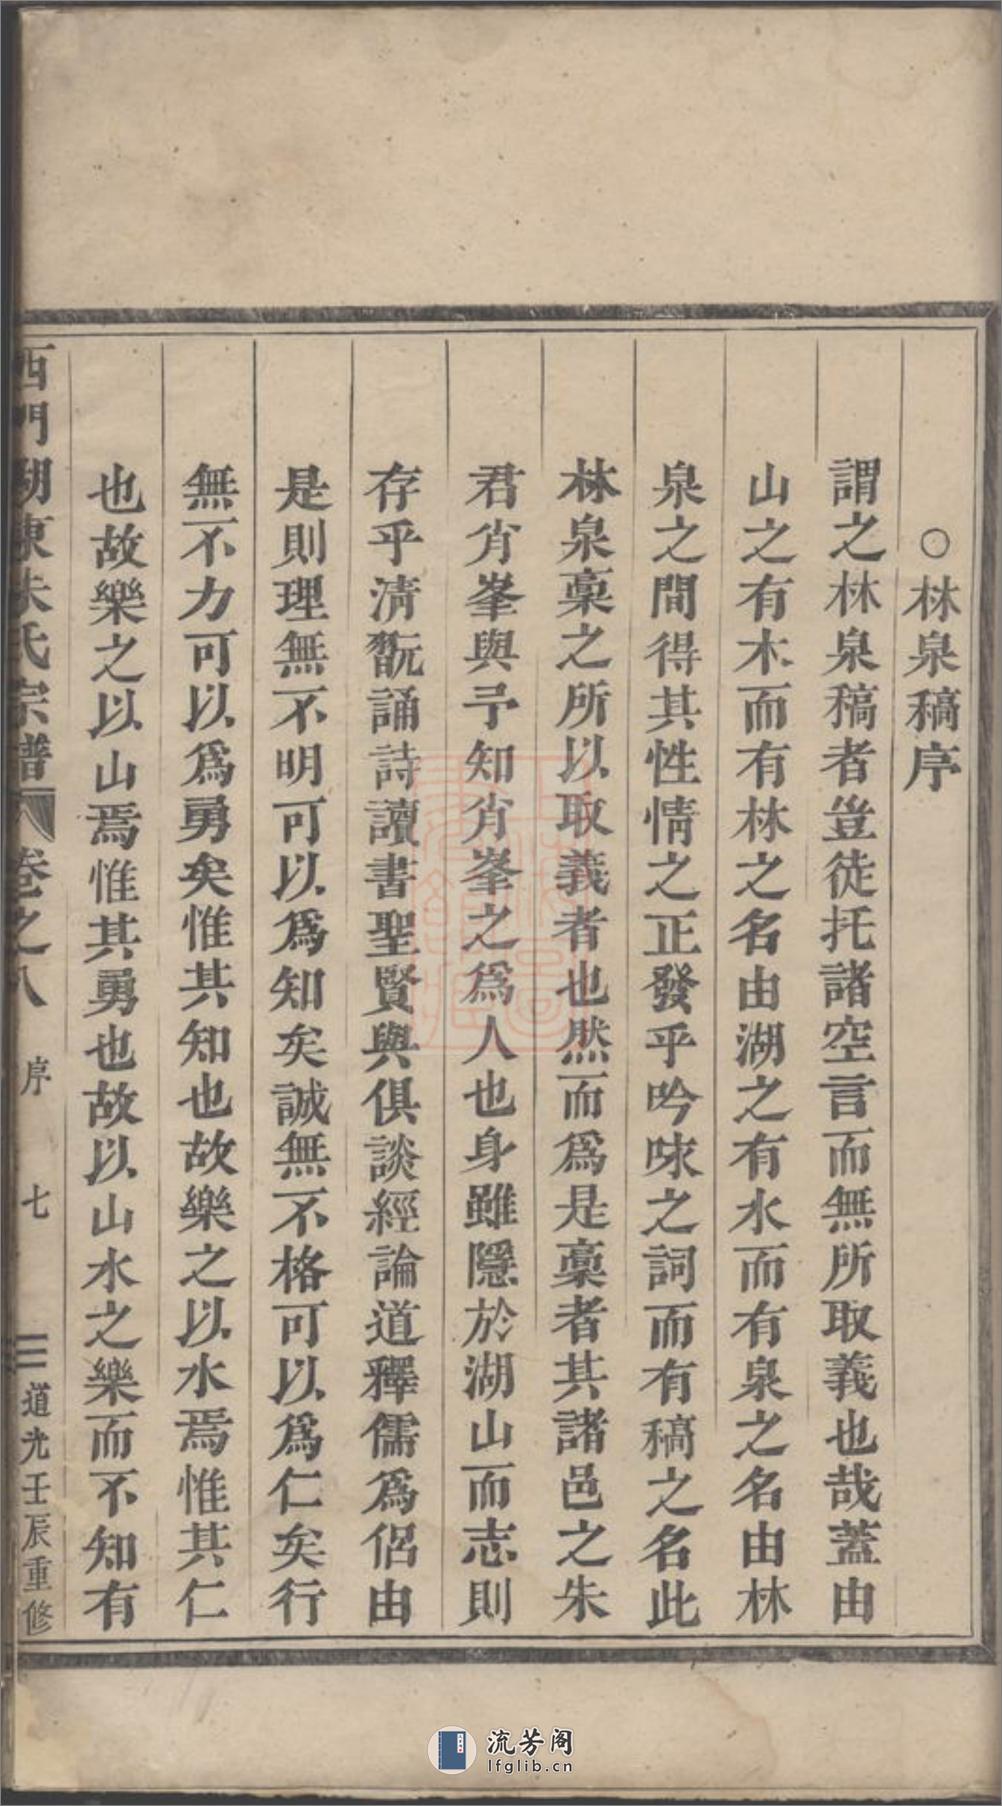 ○林泉稿序
謂之林泉稿者豈徒托諸空言而無所取義也哉蓋由
山之有木而有林之名由湖之有水而有泉之名由林
泉之間得其性情之正發乎吟咏之詞而有稿之名此
林泉稾之所以取義者也然而爲是稾者其諸邑之朱
君肖峯與予知肖峯之爲人也身雖隱於湖山而志則
存乎清翫誦詩讀書聖賢與俱談經論道釋儒爲侶由
是則理無不明可以爲知矣誠無不格可以爲仁矣行
無不力可以爲勇矣惟其知也故樂之以水焉惟其仁
也故樂之以山焉惟其勇也故以山水之樂而不知有
西門湖東朱氏宗譜 卷之八 序 七 道光壬辰重修
流芳阁
lfglib.cn